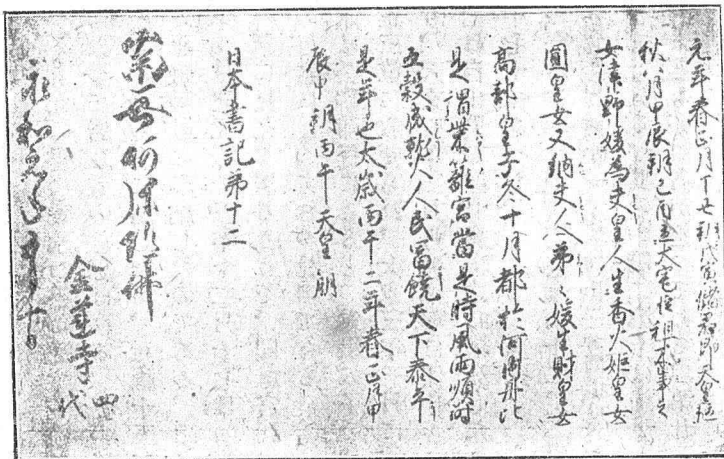 元年春正月丁丑朔戊寅儲君即天皇位
秋八月甲辰朔己酉立大宅臣祖木事之
女津野媛為夫皇人生香火姫皇女
圓皇女又納夫人弟々媛生財皇女
高部皇子冬十月都於河内丹比
是謂柴籬宮當是時風雨順時
五穀成熟人民富饒天下泰平
是年也太歳丙午二年春正月甲
辰申朔丙午天皇崩
日本書記第十二
南無阿弥陀佛
金蓮寺
四代
永和元年